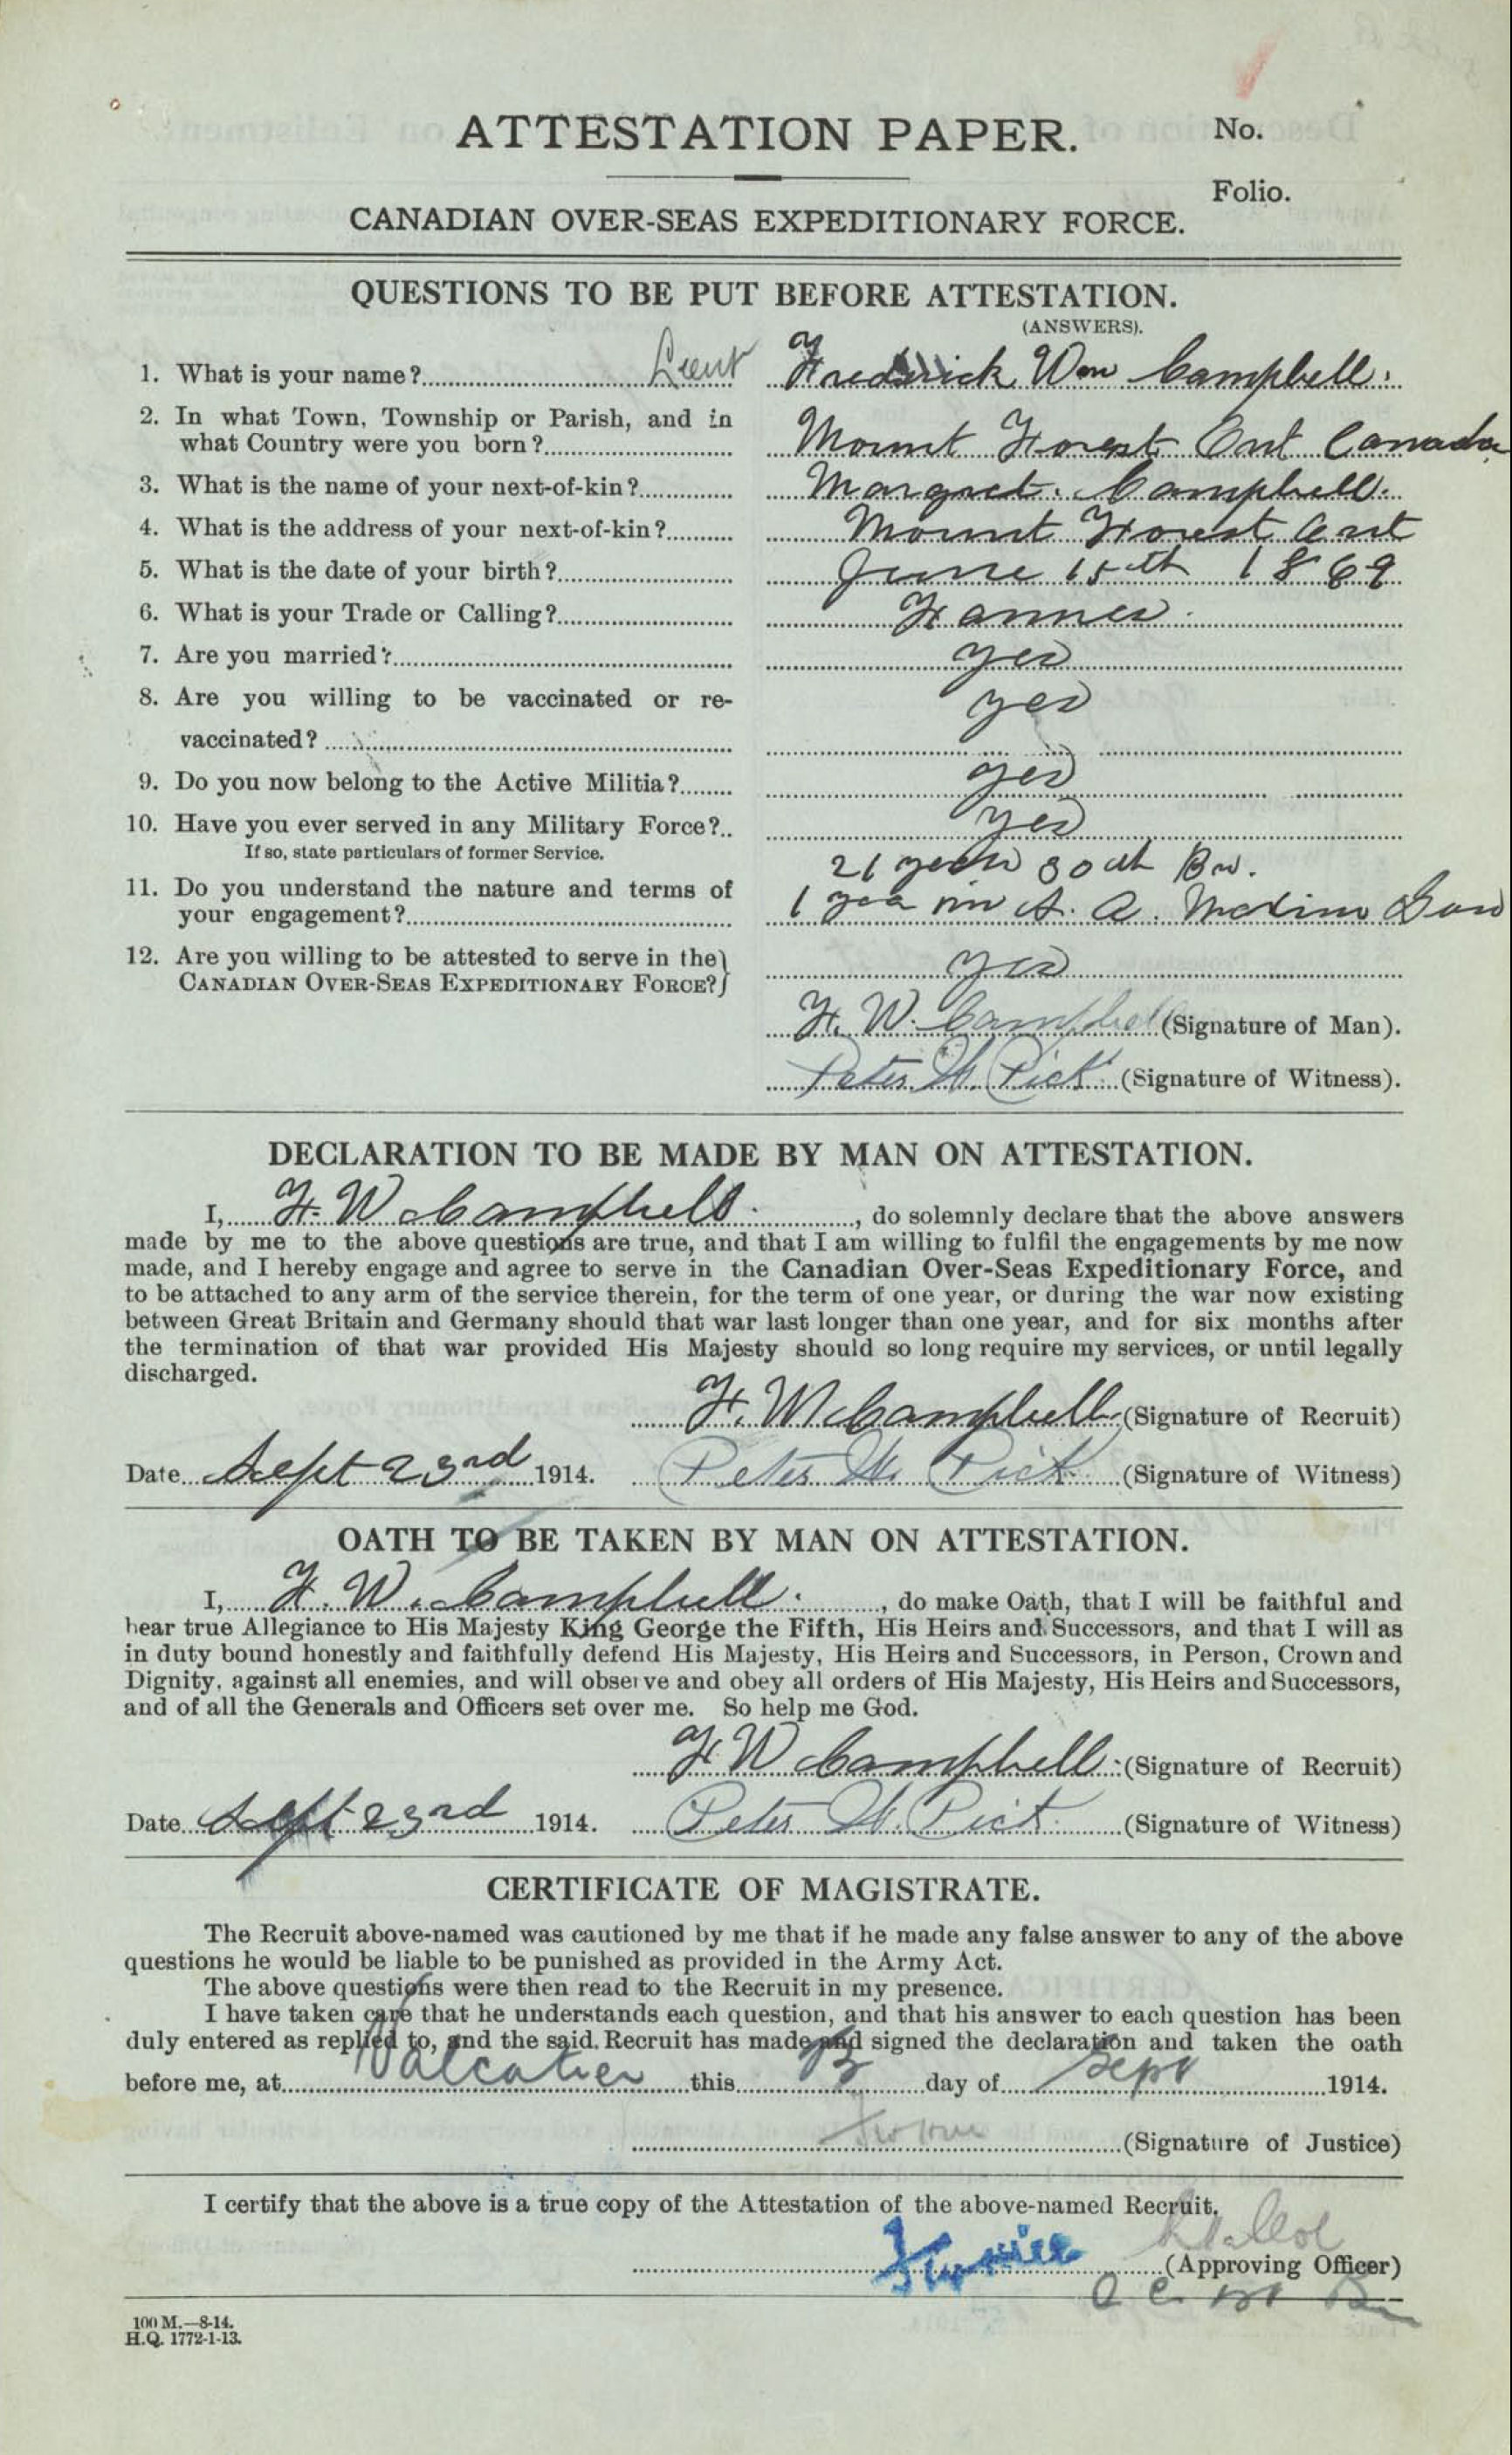 ATTESTATION PAPER.
No.
Folio.
CANADIAN OVER-SEAS EXPEDITIONARY FORCE.
QUESTIONS TO BE PUT BEFORE ATTESTATION.
(ANSWERS).
1. What is your name? Lieut Frederick Wm Campbell.
2. In what Town, Township or Parish, and in
what Country were you born? Mount Forest Ont Canada
3. What is the name of your next-of-kin? Margret. Campbell.
4. What is the address of your next-of-kin? Mount Forest Ont
5. What is the date of your birth? June 15th 1869
6. What is your Trade or Calling? Farmer.
7. Are you married? yes
8. Are you willing to be vaccinated or re- yes
vaccinated?
9. Do you now belong to the Active Militia? yes
10. Have you ever served in any Military Force? yes
If so, state particulars of former Service. 21 years 30th
11. Do you understand the nature and terms of
your engagement? 1 year in S. A. Maxim Gun
12. Are you willing to be attested to serve in the yes
CANADIAN OVER-SEAS EXPEDITIONARY FORCE?
F. W. Campbell (Signature of Man).
Peter W. Pick (Signature of Witness).
DECLARATION TO BE MADE BY MAN ON ATTESTATION.
I, F. W Campbell, do solemnly declare that the above answers
made by me to the above questions are true, and that I am willing to fulfil the engagements by me now
made, and I hereby engage and agree to serve in the Canadian Over-Seas Expeditionary Force, and
to be attached to any arm of the service therein, for the term of one year, or during the war now existing
between Great Britain and Germany should that war last longer than one year, and for six months after
the termination of that war provided His Majesty should so long require my services, or until legally
discharged.
F. W Campbell (Signature of Recruit)
Date Sept 23rd 1914. Peter W. Pick (Signature of Witness)
OATH TO BE TAKEN BY MAN ON ATTESTATION.
I, F. W. Campbell, do make Oath, that I will be faithful and
bear true Allegiance to His Majesty King George the Fifth, His Heirs and Successors, and that I will as
in duty bound honestly and faithfully defend His Majesty, His Heirs and Successors, in Person, Crown and
Dignity, against all enemies, and will observe and obey all orders of His Majesty, His Heirs and Successors,
and of all the Generals and Officers set over me. So help me God.
F. W Campbell (Signature of Recruit)
Date Sept 23rd 1914. Peter W. Pick (Signature of Witness)
CERTIFICATE OF MAGISTRATE.
The Recruit above-named was cautioned by me that if he made any false answer to any of the above
questions he would be liable to be punished as provided in the Army Act.
The above questions were then read to the Recruit in my presence.
I have taken care that he understands each question, and that his answer to each question has been
duly entered as replied to, and the said Recruit has made and signed the declaration and taken the oath
before me, at Valcatier this day of Sept 1914.
(Signature of Justice)
I certify that the above is a true copy of the Attestation of the above-named Recruit.
(Approving Officer)
100 M.—8-14.
H.Q. 1772-1-13.